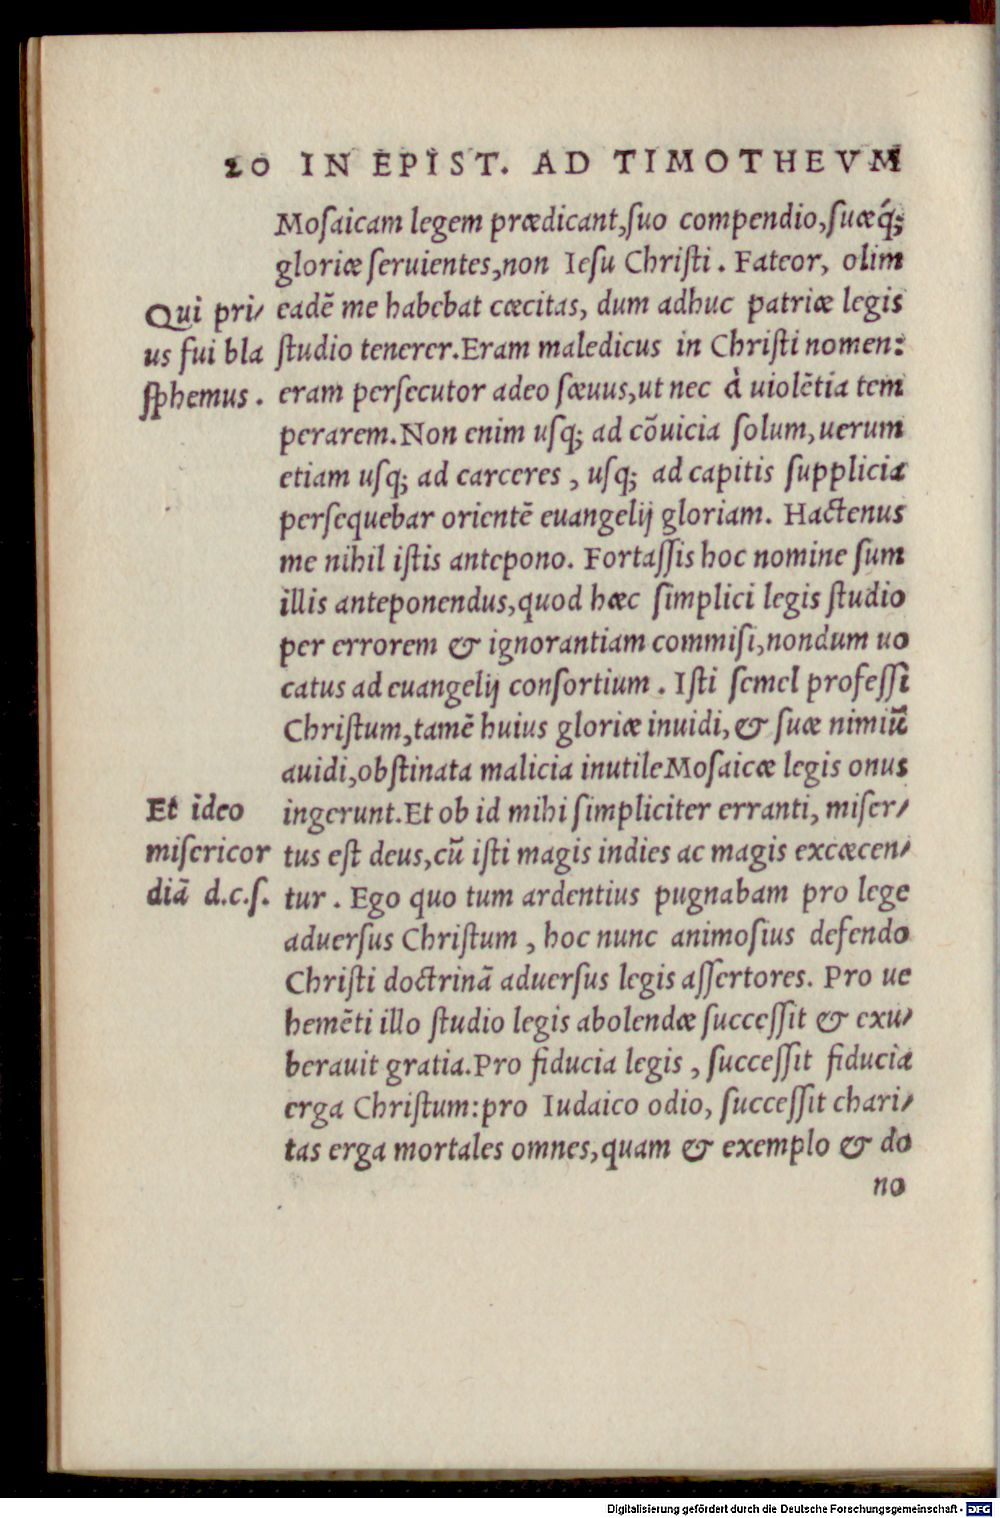 20 IN EPIST. AD TIMOTHEVM
Moſaicam legem prædicant,ſuo compendio,ſuæq́;
gloriæ ſeruientes,non Ieſu Chriſti . Fateor, olim
Qui pri/
eadē me habebat cæcitas, dum adhuc patriæ legis
us fui bla
ſtudio tenerer.Eram maledicus in Chriſti nomen:
ſphemus .
eram perſecutor adeo ſæuus,ut nec à uiolētia tem
perarem.Non enim uſq; ad cōuicia ſolum,uerum
etiam uſq; ad carceres , uſq; ad capitis ſupplicia
perſequebar orientē euangelij gloriam. Hactenus
me nihil iſtis antepono. Fortaſſis hoc nomine ſum
illis anteponendus,quod hæc ſimplici legis ſtudio
per errorem & ignorantiam commiſi,nondum uo
catus ad euangelij conſortium . Iſti ſemel profeſſi
Chriſtum,tamē huius gloriæ inuidi,& ſuæ nimiū
auidi,obſtinata malicia inutileMoſaicæ legis onus
Et ideo
ingerunt.Et ob id mihi ſimpliciter erranti, miſer/
miſericor
tus eſt deus,cū iſti magis indies ac magis excæcen/
diā d.c.ſ.
tur . Ego quo tum ardentius pugnabam pro lege
aduerſus Chriſtum , hoc nunc animoſius defendo
Chriſti doctrinā aduerſus legis aſſertores. Pro ue
hemēti illo ſtudio legis abolendæ ſucceſſit & exu/
berauit gratia.Pro fiducia legis , ſucceſſit fiducia
erga Chriſtum:pro Iudaico odio, ſucceſſit chari/
tas erga mortales omnes,quam & exemplo & do
no
Digitalisierung gefördert durch die Deutsche Forschungsgemeinschaft - DFG